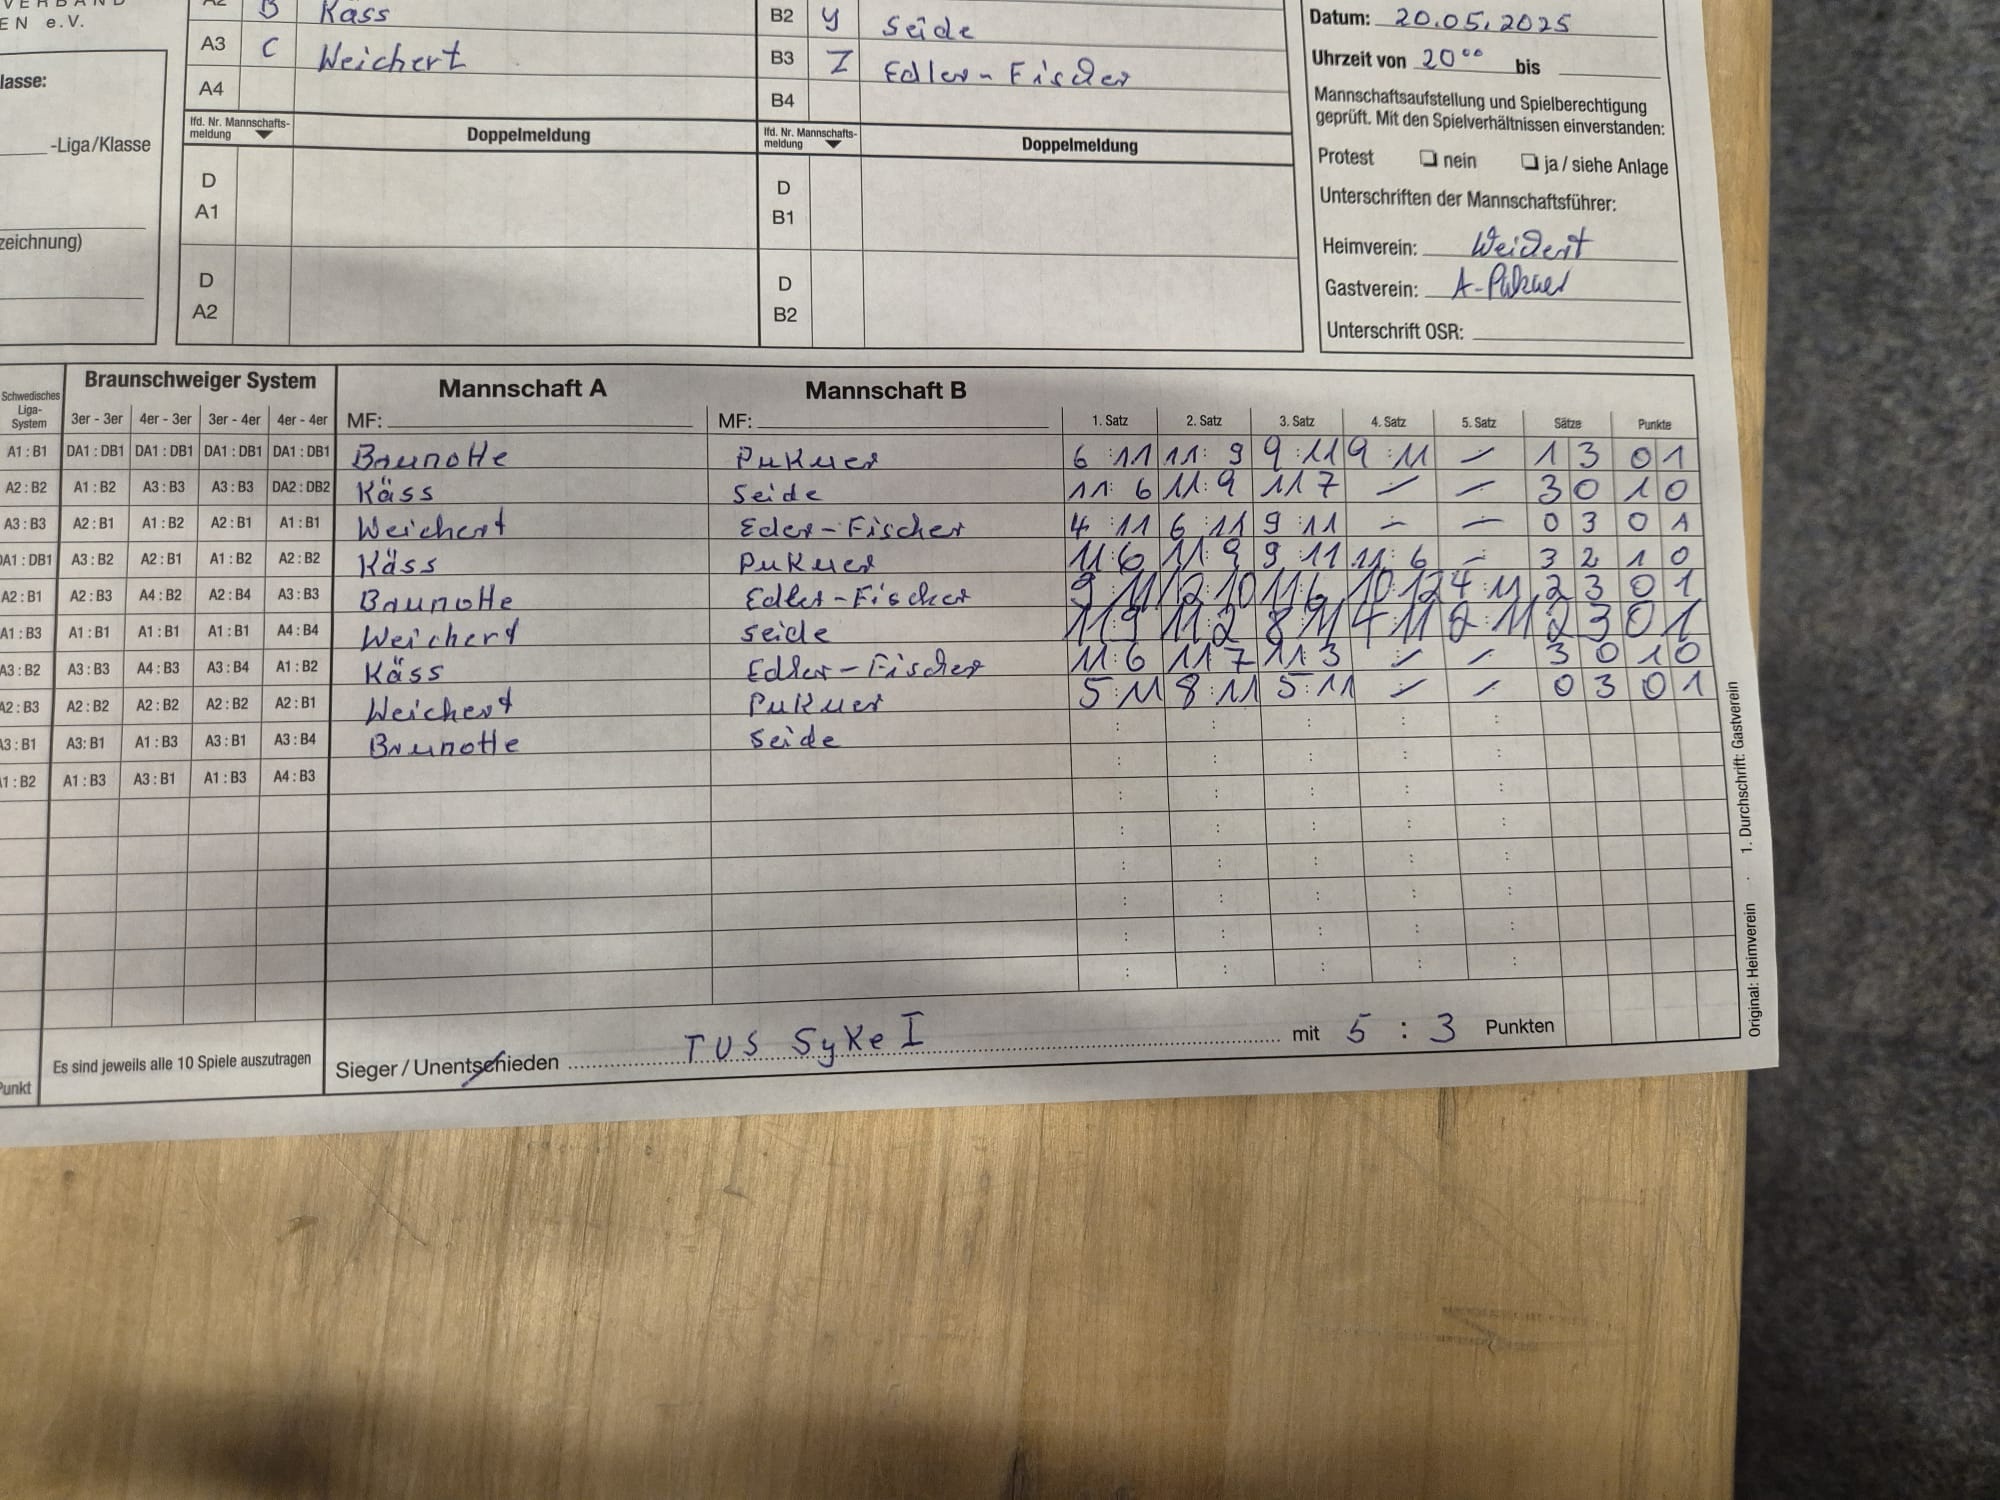 VERBAND
EN e.V.
A2 B Käss
B2 Y Seide
Datum: 20.05.2025
A3 C Weichert
B3 Z Edler-Fischer
Uhrzeit von 20°° bis
A4
B4
lasse:
Mannschaftsaufstellung und Spielberechtigung
geprüft. Mit den Spielverhältnissen einverstanden:
lfd. Nr. Mannschafts-
meldung
Doppelmeldung
lfd. Nr. Mannschafts-
meldung
Doppelmeldung
-Liga/Klasse
Protest nein ja / siehe Anlage
D
A1
D
B1
Unterschriften der Mannschaftsführer:
zeichnung)
Heimverein: Weichert
D
A2
D
B2
Gastverein: A-Pukner
Unterschrift OSR:
Schwedisches
Liga-
System
Braunschweiger System
Mannschaft A
Mannschaft B
3er - 3er 4er - 3er 3er - 4er 4er - 4er MF: MF: 1. Satz 2. Satz 3. Satz 4. Satz 5. Satz Sätze Punkte
A1 : B1 DA1 : DB1 DA1 : DB1 DA1 : DB1 DA1 : DB1 Brunotte Pukner 6 :11 11: 9 9 :11 9 :11 – 1 3 0 1
A2 : B2 A1 : B2 A3 : B3 A3 : B3 DA2 : DB2 Käss Seide 11: 6 11:9 11 7 – – 3 0 1 0
A3 : B3 A2 : B1 A1 : B2 A2 : B1 A1 : B1 Weichert Eder-Fischer 4 :11 6 :11 9 :11 – – 0 3 0 1
DA1 : DB1 A3 : B2 A2 : B1 A1 : B2 A2 : B2 Käss Pukner 11:6 11:9 9 :11 11: 6 – 3 2 1 0
A2 : B1 A2 : B3 A4 : B2 A2 : B4 A3 : B3 Brunotte Edler-Fischer 9 :11 12:10 11:6 10:12 4:11 2 3 0 1
A1 : B3 A1 : B1 A1 : B1 A1 : B1 A4 : B4 Weichert Seide 11:9 11:2 8:11 4:11 2:11 2 3 0 1
A3 : B2 A3 : B3 A4 : B3 A3 : B4 A1 : B2 Käss Edler-Fischer 11:6 11:7 11:3 – – 3 0 1 0
A2 : B3 A2 : B2 A2 : B2 A2 : B2 A2 : B1 Weichert Pukner 5:11 8:11 5:11 – – 0 3 0 1
A3 : B1 A3: B1 A1 : B3 A3 : B1 A3 : B4 Brunotte Seide
1 : B2 A1 : B3 A3 : B1 A1 : B3 A4 : B3
Punkt
Es sind jeweils alle 10 Spiele auszutragen
Sieger / Unentschieden TUS SyKe I mit 5 : 3 Punkten
Original: Heimverein · 1. Durchschrift: Gastverein